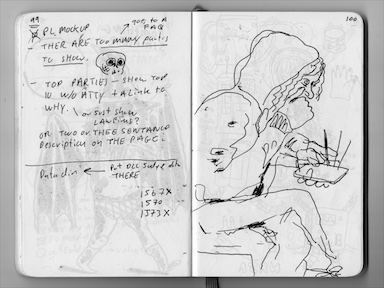 99
PL MOCKUP
goes to a
FAQ
THER ARE Too many parties
to show.
- TOP PARTIES - show top
10 w/o ATTY + A Link to
WHY.
or just show
LAW FIRMS?
OR TWO OR THEE SENTANCE
Description on THE PAGE.
Put DCL there
THERE
1567X
1570
1573X
100